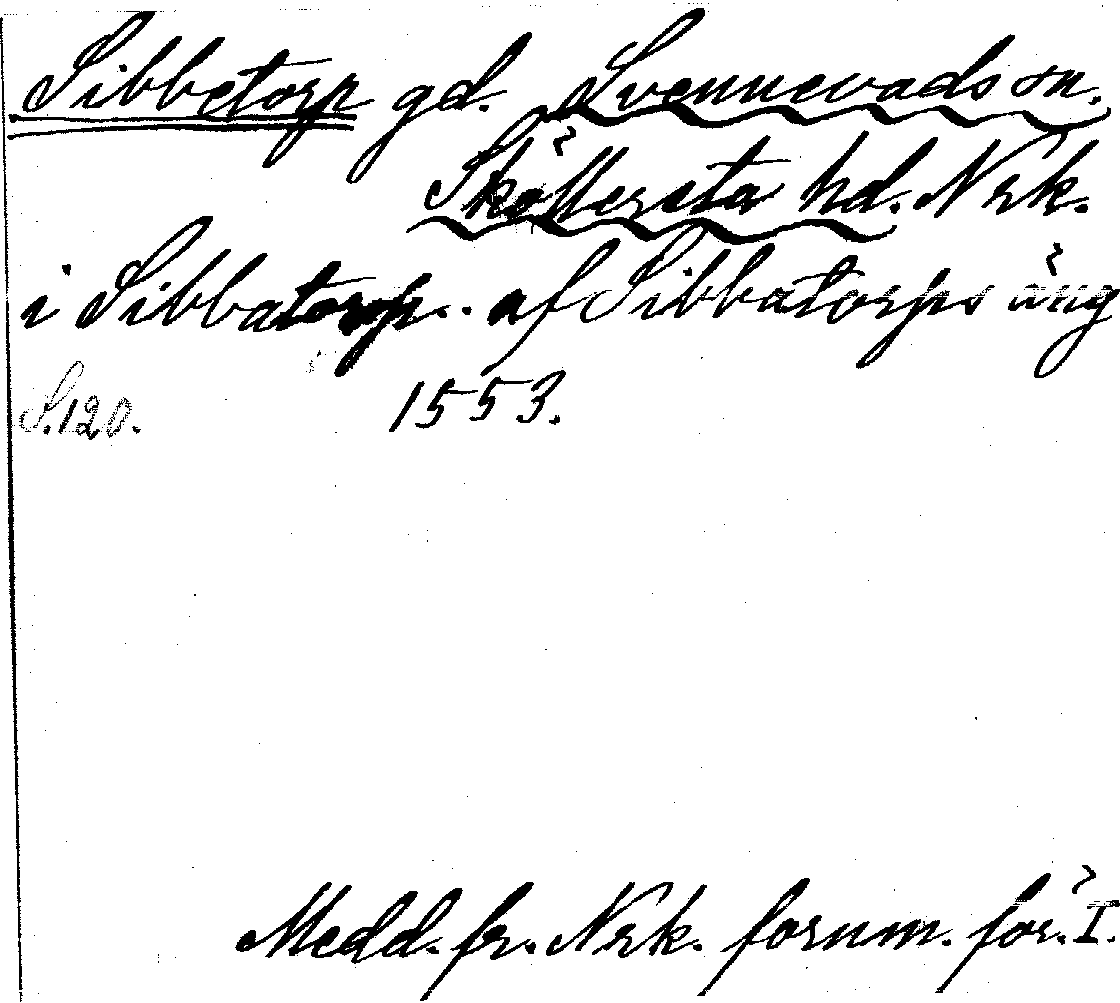 Sibbetorp gd. Svennevads sn.
Sköllersta hd. Nrk.
i Sibbatorp.. af Sibbatorps äng
S. 120. 1553.
Medd. fr. Nrk. fornm. för. I.